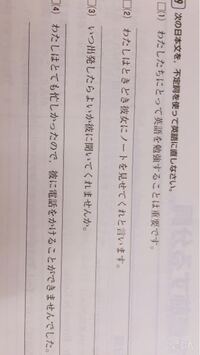 9 次の日本文を、不定詞を使って英語に直しなさい。
□(1) わたしたちにとって英語を勉強することは重要です。
□(2) わたしはときどき彼女にノートを見せてくれと言います。
□(3) いつ出発したらよいか彼に聞いてくれませんか。
□(4) わたしはとても忙しかったので、彼に電話をかけることができませんでした。